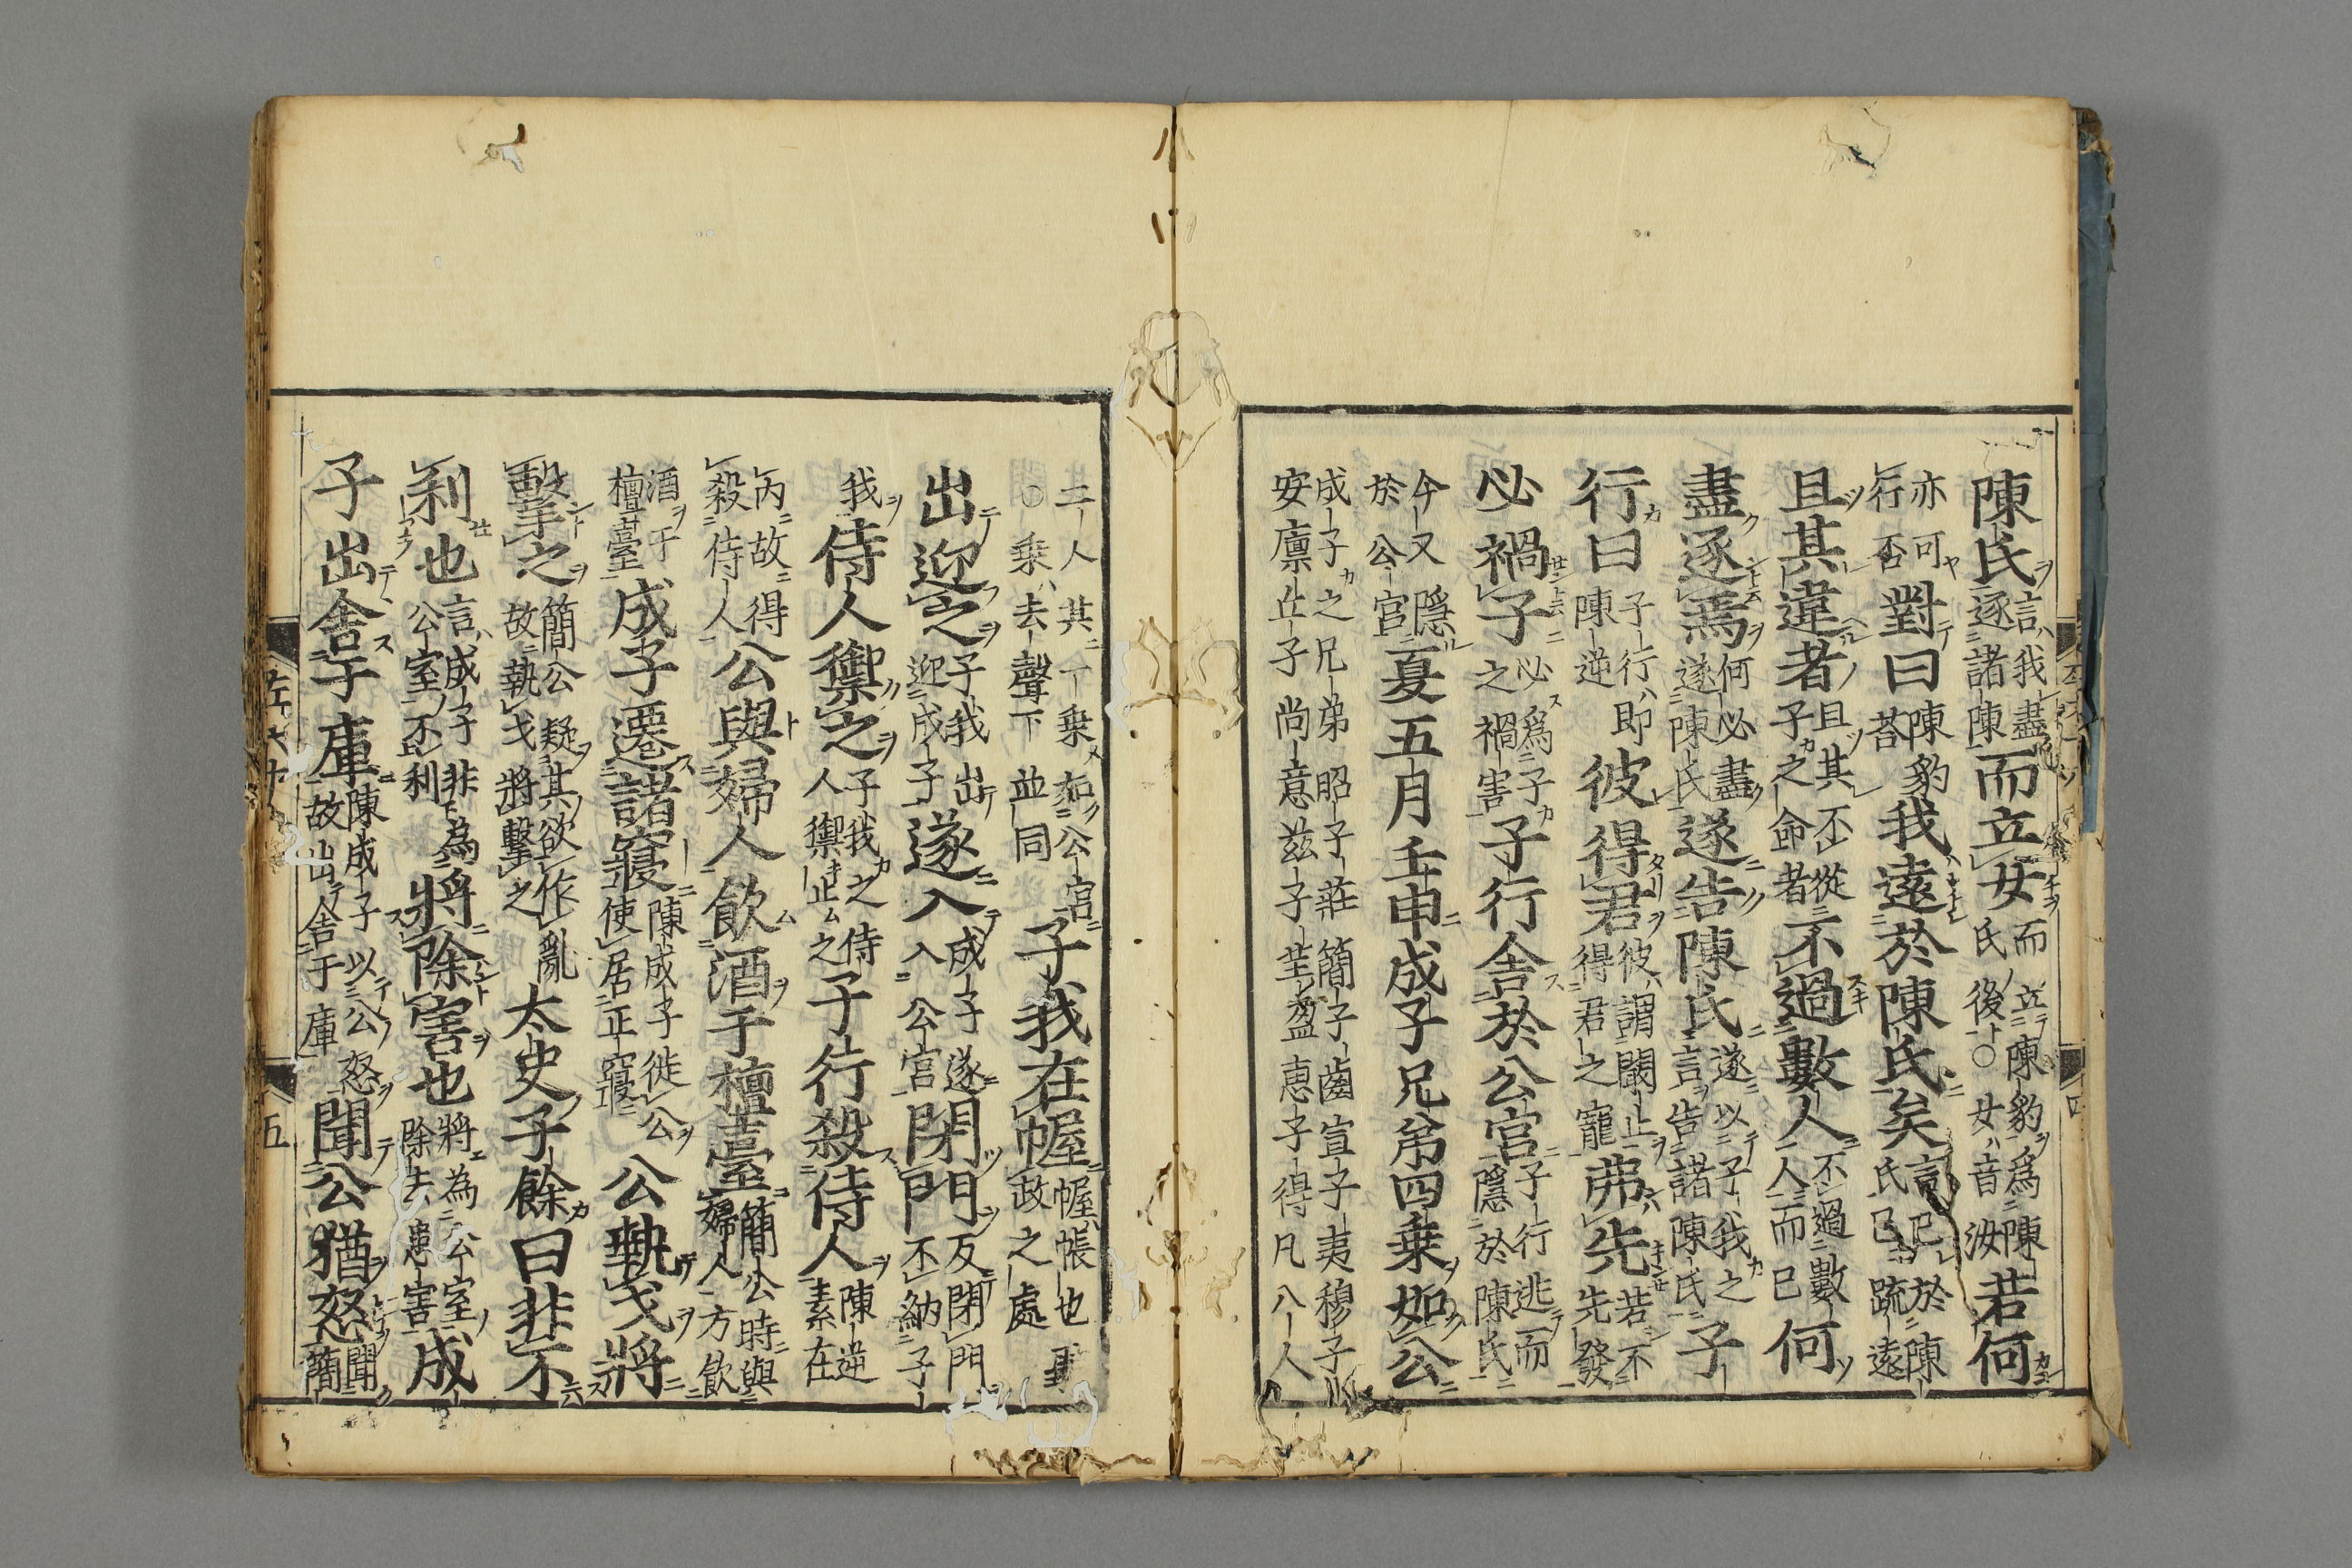 陳氏言我盡逐諸陳而立女而立陳豹爲陳氏後○女音汝若何
亦可行否對曰陳豹荅我遠於陳氏矣言已於陳氏已疏遠
且其違者且其不從子之命者不過數人不過數人而已何
盡逐焉何必盡逐陳氏遂告陳氏遂以子我之言告諸陳氏子
行曰子行即陳逆彼得君彼謂闞止得君之寵弗先若不先發
必禍子必爲子之禍害子行舍於公宮子行逃而隱於陳氏
今又隱於公宮夏五月壬申成子兄弟四乗如公
成子之兄弟昭子莊簡子齒宣子夷穆子
安廪丘子尚意玆子芒盈惠子得凡八人
二人共一乗如公宮○乗去聲下並同子我在幄幄帳也政之處
出迎之子我出迎成子遂入成子遂入公宮閉門反閉門不納子
我侍人禦之子我之侍人禦止之子行殺侍人陳逆素在
內故得殺侍人公與婦人飮酒于檀臺簡公時與婦人方飮
酒于檀臺成子遷諸寢陳成子徙公使居正寢公執戈將
擊之簡公疑其欲作亂故執戈將擊之太史子餘曰非不
利也言成子非爲公室不利將除害也將爲公室除去患害成
子出舍于庫陳成子以公怒故出舍于庫聞公猶怒聞簡